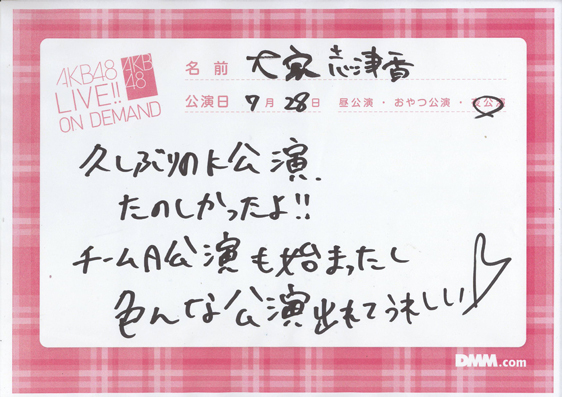 AKB48
LIVE!!
ON DEMAND
AKB
48
名前 大家志津香
公演日 7月28日 昼公演・おやつ公演・夜公演
久しぶりのK公演
たのしかったよ!!
チームA公演も始まったし
色んな公演出れてうれしい
DMM.com